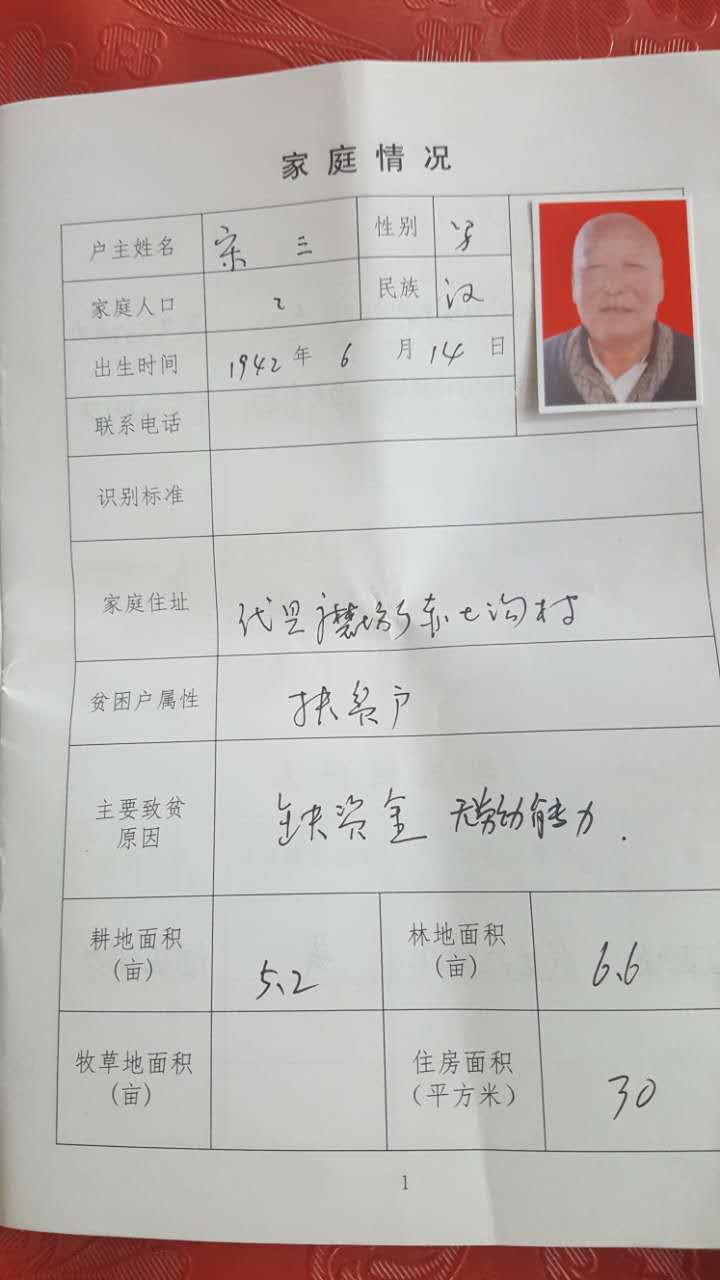 家庭情况
户主姓名 宋三 性别 男
家庭人口 2 民族 汉
出生时间 1942年6月14日
联系电话
识别标准
家庭住址 代县磨坊乡赤土沟村
贫困户属性 扶贫户
主要致贫原因 缺资金 无劳动能力.
耕地面积(亩) 5.2 林地面积(亩) 6.6
牧草地面积(亩) 住房面积(平方米) 30
1